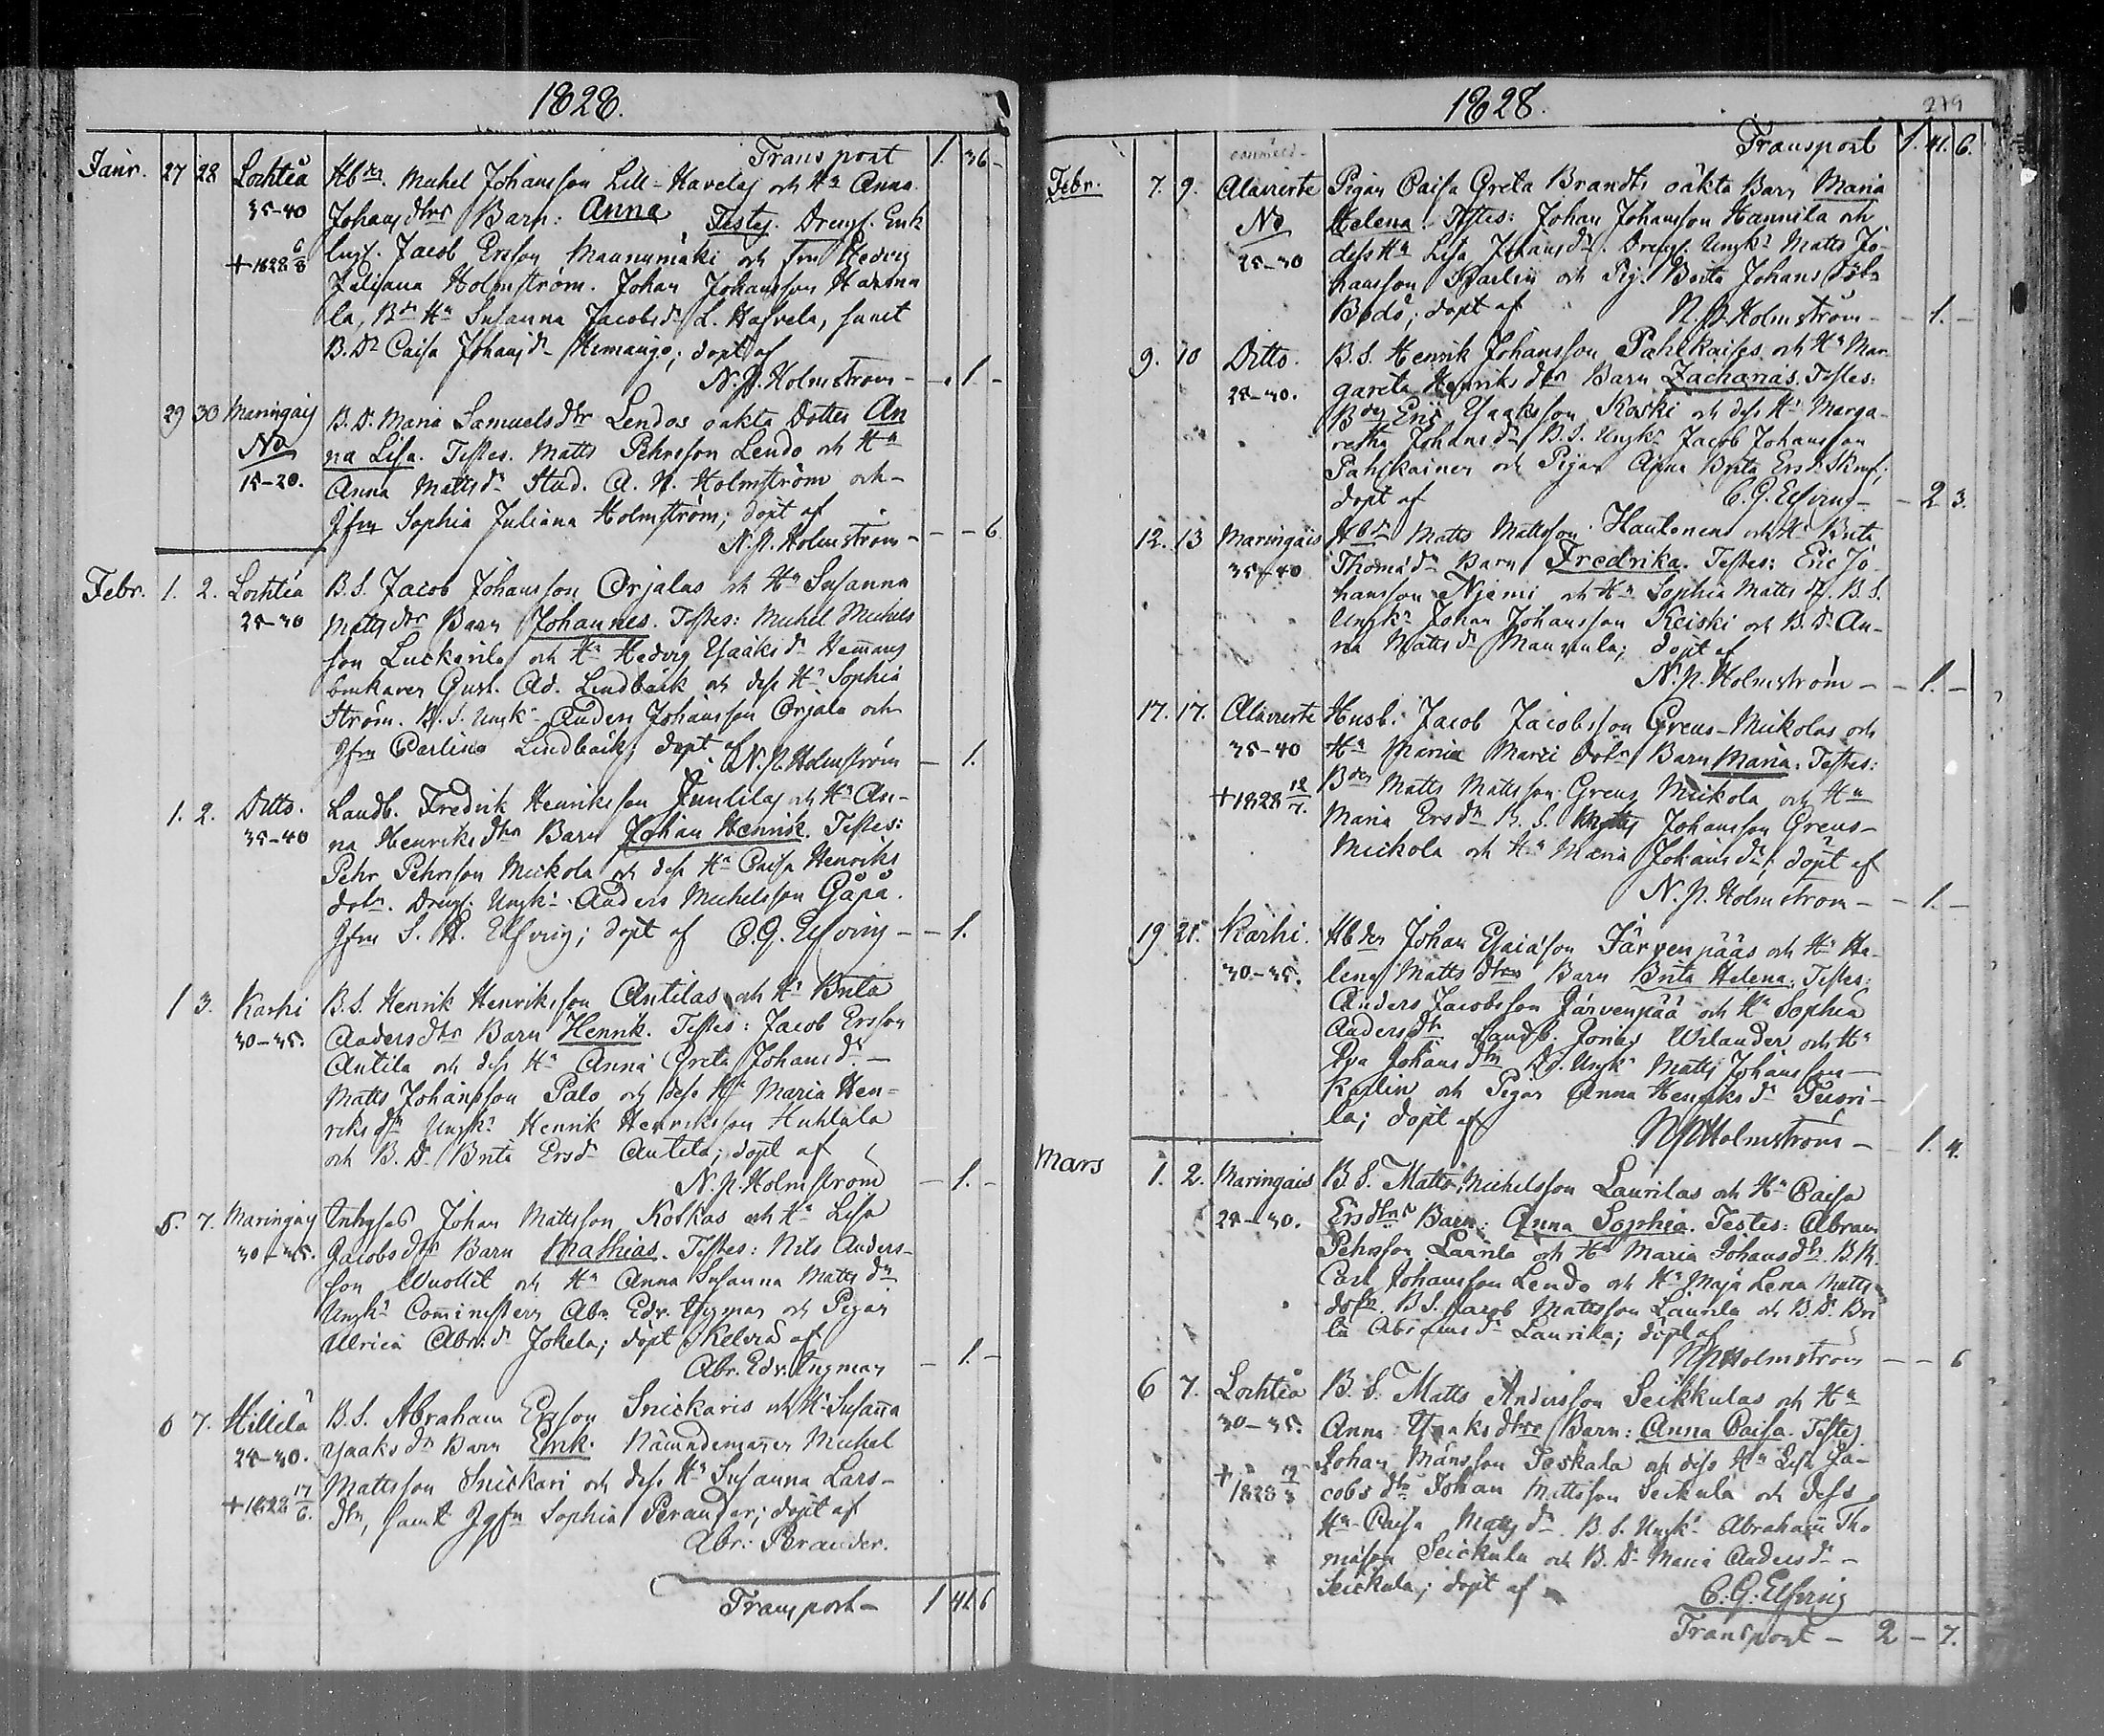 1828.
Transport 1. 36 -
Janr. 27 28 Lochteå Hbdes. Mickel Johansson Lill-Havelas och Hu Anna
35-40 Johansdtrs Barn: Anna. Testes. Drengs. Enk
+ 1828 6/8 lingf. Jacob Ersson Maunumäki och fru Hedvig
Juliana Holmström. Johan Johansson
la, Bdn Hu Susanna Jacobsdr L. Hafvela, samt
B. Dr Caisa Johansdr Himango; döpt af
N. P. Holmström - - 1. -
29 30 Maringais B. D. Maria Samuels dtr Lendos oäkta Dotter An
No na Lisa. Testes. Matts Pehrsson Lendo och Hu
15-20. Anna Mattsdr Stud. A. N. Holmström och
Jfru Sophia Juliana Holmström; döpt af
N. P. Holmström - - - 6
Febr. 1. 2. Lochteå B. S. Jacob Johansson Orjalas och Hu Susanna
25-30 Mattsdtr Barn Johannes. Testes: Mickel Mickels
son Luckarila och Hu Hedvig Esaaksdr Hemans
brukaren Gust. Ad. Lindbäck och dess Hu Sophia
Ström. B. S. Ungk. Anders Johansson Orjala och
Jfru Carlina Lindbäck; döpt af
N. P. Holmström - 1.
1. 2. Ditto. Landb. Fredrik Henriksson Juntilas och Hu An-
35-40 na Henriksdtrs Barn Johan Henrik. Testes:
Pehr Pehrsson Mickola och dess Hu Caisa Henriks
dotr. Drengs. Ungk. Anders Mickelsson Gåpå.
Jfru S. H. Elfving; döpt af C. G. Elfving - - 1.
1 3. Karhi B. S. Henrik Henriksson Antilas och Hu Brita
30-35. Andersdtr Barn Henrik. Testes: Jacob Ersson
Antila och dess Hu Anna Greta Johansdr -
Matts Johansson Palo och dess Hu Maria Hen-
riksdtr Ungk. Henrik Henriksson Huhtala
och B. D. Brita Ersdr Antila; döpt af
N. P. Holmström - 1. -
5. 7. Maringais Inhyses Johan Mattsson Kotkas och Hu Lisa
30-35. Jacobsdtr Barn Mathias. Testes: Nils Anders-
son Wuollet och Hu Anna Susanna Mattsdr
Ungk. Comministern Abr. Edv. Ingman och Pigan
Ulrica Abr. dr Jokela; döpt i Kelviå af
Abr. Edv. Ingman - 1. -
6 7. Hillilä B. S. Abraham Ersson Snickaris och Hu Susanna
25-30. Esaaksdr Barn Erik. Nämndemannen Mickel
+ 1828 17/6. Mattsson Snickari och dess Hu Susanna Lars-
dtr, samt Jgfru Sophia Perander; döpt af
Abr: Perander.
Transport - 1 41 6
1828. 279
Transport 1. 41. 6.
Febr. 7. 9. Alaviirte Pigan Caisa Greta Brandts oäkta Barn Maria
No Helena. Testes: Johan Johansson Hannila och
25-30 dess Hu Lisa Johansdr. Drengs. Ungk. Matts Jo-
hansson Karlin och Pig. Brita Johans dotr
Bodö; döpt af N. P. Holmström - - 1. -
9. 10 Ditto. B. S. Henrik Johansson Pahkaises och Hu Mar
25-30. gareta Henriksdtr Barn Zacharias. Testes:
Bden Eric Esaaksson Koski och dess Hu Marga-
retha Johansdr B. S. Ungk. Jacob Johansson
Pahkainen och Pigan Anna Brita Ersdr
döpt af C. G. Elfving - - 2 3.
12. 13 Maringais Hbdn Matts Mattsson Hautonen och Hu Brita
35-40 Thomadr Barn Fredrika. Testes: Eric Jo-
hansson Njemi och Hu Sophia Mattsdr. B. S.
Ungk. Johan Johansson Keiski och B. D. An-
na Mattsdr Maunula; döpt af
N. P. Holmström - - 1. -
17. 17. Alaviirte Husb. Jacob Jacobsson Greus-Mickolas och
35-40 Hu Maria Dotr Barn Maria. Testes:
+ 1828 12/7. Bden Matts Mattsson Greus Mickola och Hu
Maria Ersdr B. S. Matts Johansson Greus-
Mickola och Hu Maria Johansdr; döpt af
N. P. Holmström - - 1. -
19 21. Karhi. Hbden Johan Esaiasson Järvenpääs och Hu He-
30-35. lena Mattsdtrs Barn Brita Helena. Testes:
Anders Jacobsson Järvenpää och Hu Sophia
Andersdtr Landb. Jonas Wilander och Hu
Eva Johansdtr Dr. Ungk. Matts Johansson
Karlin och Pigan Anna Henriksdr Tuori-
la; döpt af
N P Holmström - 1. 4.
Mars 1. 2. Maringais B. S. Matts Mickelsson Laurilas och Hu Caisa
25-30. Ersdtrs Barn: Anna Sophia. Testes: Abram
Pehrsson Laurila och Hu Maria Johansdtr. B. K.
Carl Johansson Lendo och Hu Maja Lena Matts
dotr. B. S. Jacob Mattsson Laurila och B. D. Bri
ta Abramsdr Laurila; döpt af
N P Holmström - - 6
6 7. Lochteå B. S. Matts Andersson Seikkulas och Hu
30-35. Anna Esaaksdtrs Barn: Anna Caisa. Testes
+ 1828 19/3 Johan Månsson Peskala och dess Hu Lisa Ja-
cobsdtr Johan Mattsson Seikula och dess
Hu Caisa Mattsdr B. S. Ungk. Abraham Tho
masson Seickula och B. D. Maria Andersdr -
Seickula; döpt af C. G. Elfving
Transport - 2 - 7.